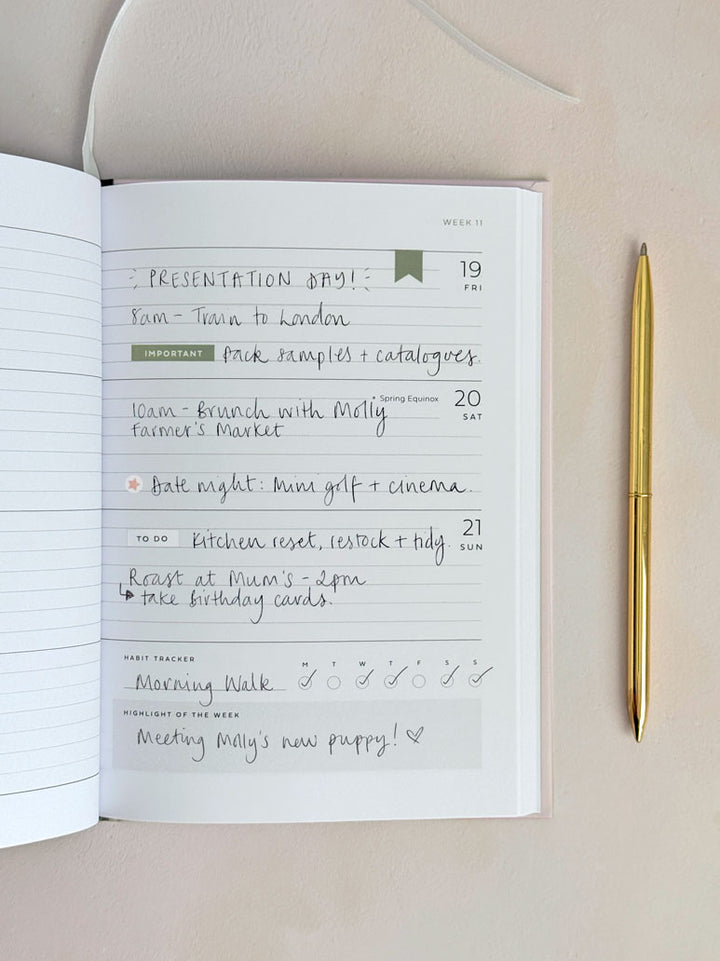 WEEK 11
PRESENTATION DAY!
19
FRI
8am - Train to London
IMPORTANT Pack samples + catalogues.
Spring Equinox
20
SAT
10am - Brunch with Molly
Farmer's Market
Date night: Mini golf + cinema.
21
SUN
TO DO Kitchen reset, restock + tidy.
Roast at Mum's - 2pm
↳ take Birthday cards.
HABIT TRACKER
M T W T F S S
Morning Walk
HIGHLIGHT OF THE WEEK
Meeting Molly's new puppy! ♡